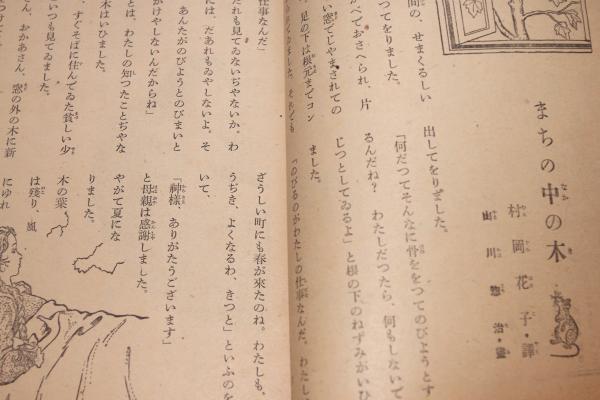 まちの中の木
村岡花子・譯
山川惣治・畫
間の、せまくるしい
つてをりました。
かべでおさへられ、片
い窓でじやまされての
、足の下は根元までコン
出してをりました。
「何だつてそんなに骨ををつてのびようとす
るんだね？　わたしだつたら、何もしないで
じつとしてゐるよ」と根の下のねずみがいひ
ました。
「のびるのがわたしの仕事なんだ。わたし
仕事なんだ」
だれも見てゐないぢやないか。わ
には、だあれもゐやしないよ。そ
、あんたがのびようとのびまいと
かけやしないんだからね」
とは、わたしの知つたことぢやな
木はいひました。
、すぐそばに住んでゐた貧しい少
いつも見てゐました。
、おかあさん、窓の外の木に新
ざうしい町にも春が來たのね。わたしも、
うぢき、よくなるわ、きつと」といふのを
いて、
「神樣、ありがたうございます」
と母親は感謝しました。
やがて夏にな
りました。
木の葉
は殘り、嵐
にゆれ